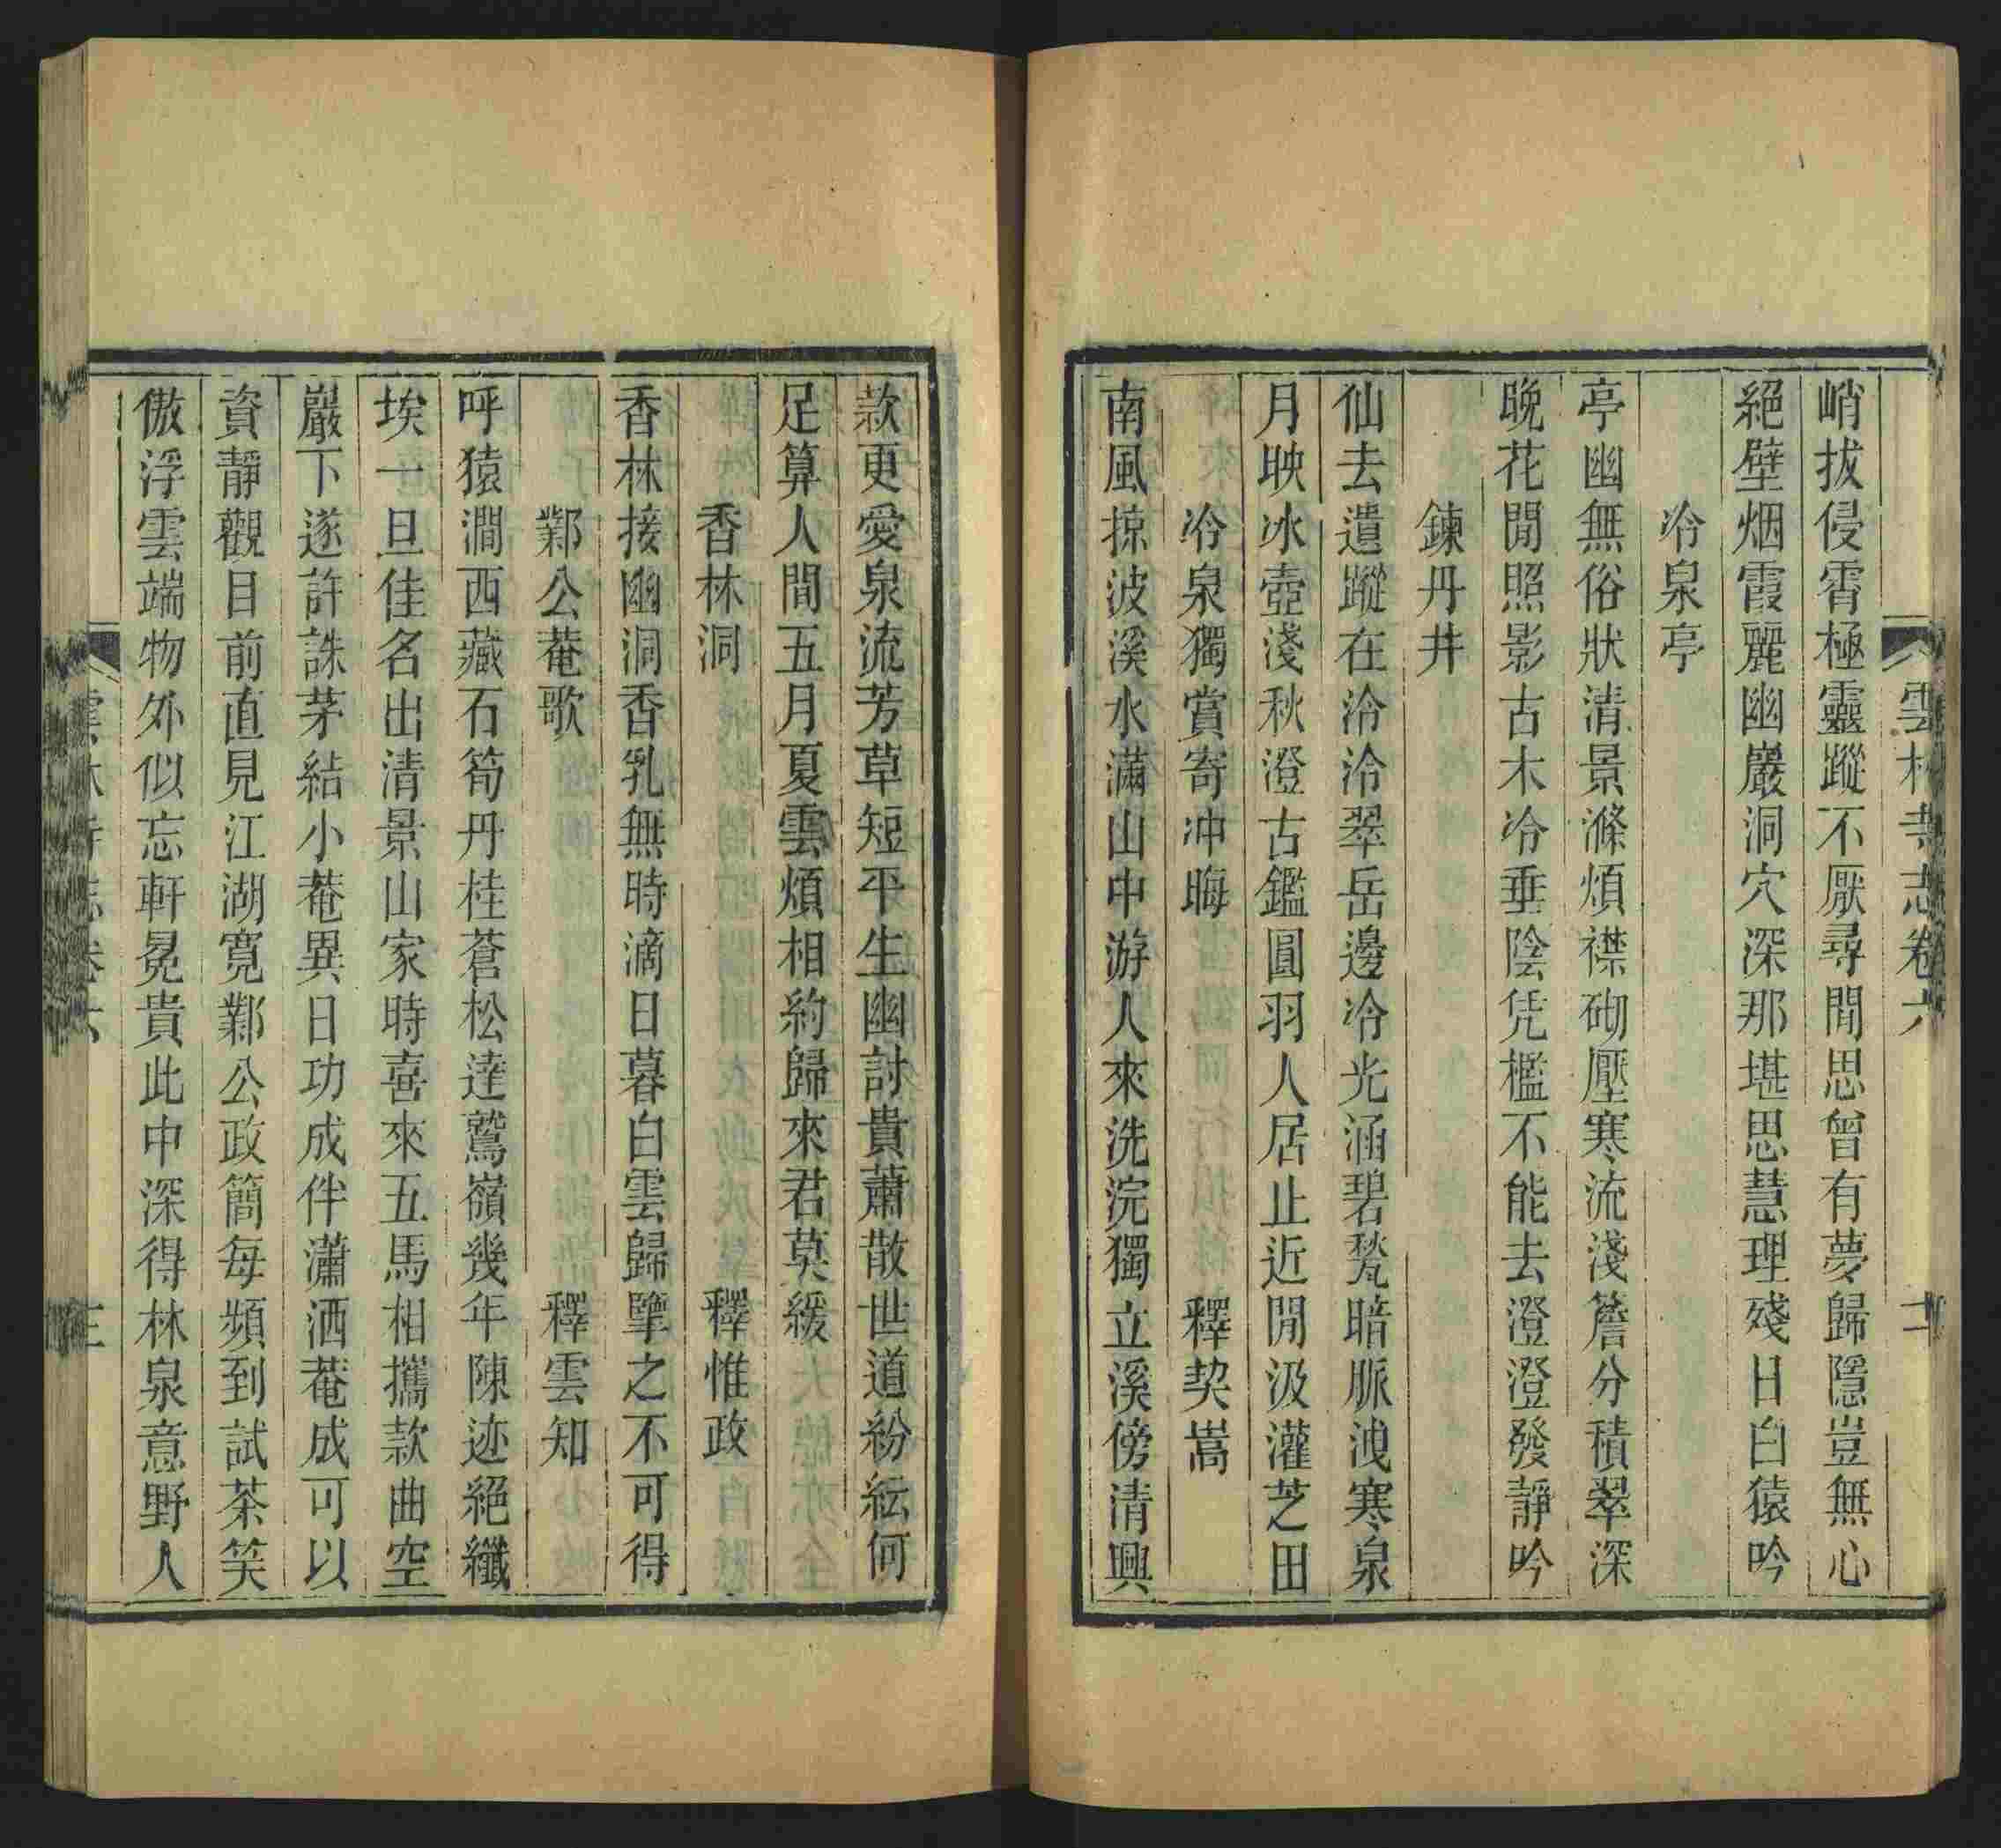 雲林寺志卷六
峭拔侵霄極靈蹤不厭尋閒思曾有夢歸隱豈無心
絕壁烟霞麗幽巖洞穴深那堪思慧理殘日白猿吟
冷泉亭
亭幽無俗狀清景滌煩襟砌壓寒流淺簷分積翠深
晚花閒照影古木冷垂陰凭檻不能去澄澄發靜吟
鍊丹井
仙去遺蹤在泠泠翠岳邊冷光涵碧甃暗脈洩寒泉
月映冰壺淺秋澄古鑑圓羽人居止近閒汲灌芝田
冷泉獨賞寄冲晦 釋契嵩
南風掠波溪水滿山中游人來洗浣獨立溪傍清興
款更愛泉流芳草短平生幽討貴蕭散世道紛紜何
足算人間五月夏雲煩相約歸來君莫緩
香林洞 釋惟政
香林接幽洞香乳無時滴日暮白雲歸擥之不可得
鄞公菴歌 釋雲知
呼猿澗西藏石筍丹桂蒼松達鷲嶺幾年陳迹絕纖
埃一旦佳名出清景山家時喜來五馬相攜款曲空
巖下遂許誅茅結小菴異日功成伴瀟洒菴成可以
資靜觀目前直見江湖寬鄞公政簡每頻到試茶笑
傲浮雲端物外似忘軒冕貴此中深得林泉意野人
雲林寺志卷六 三